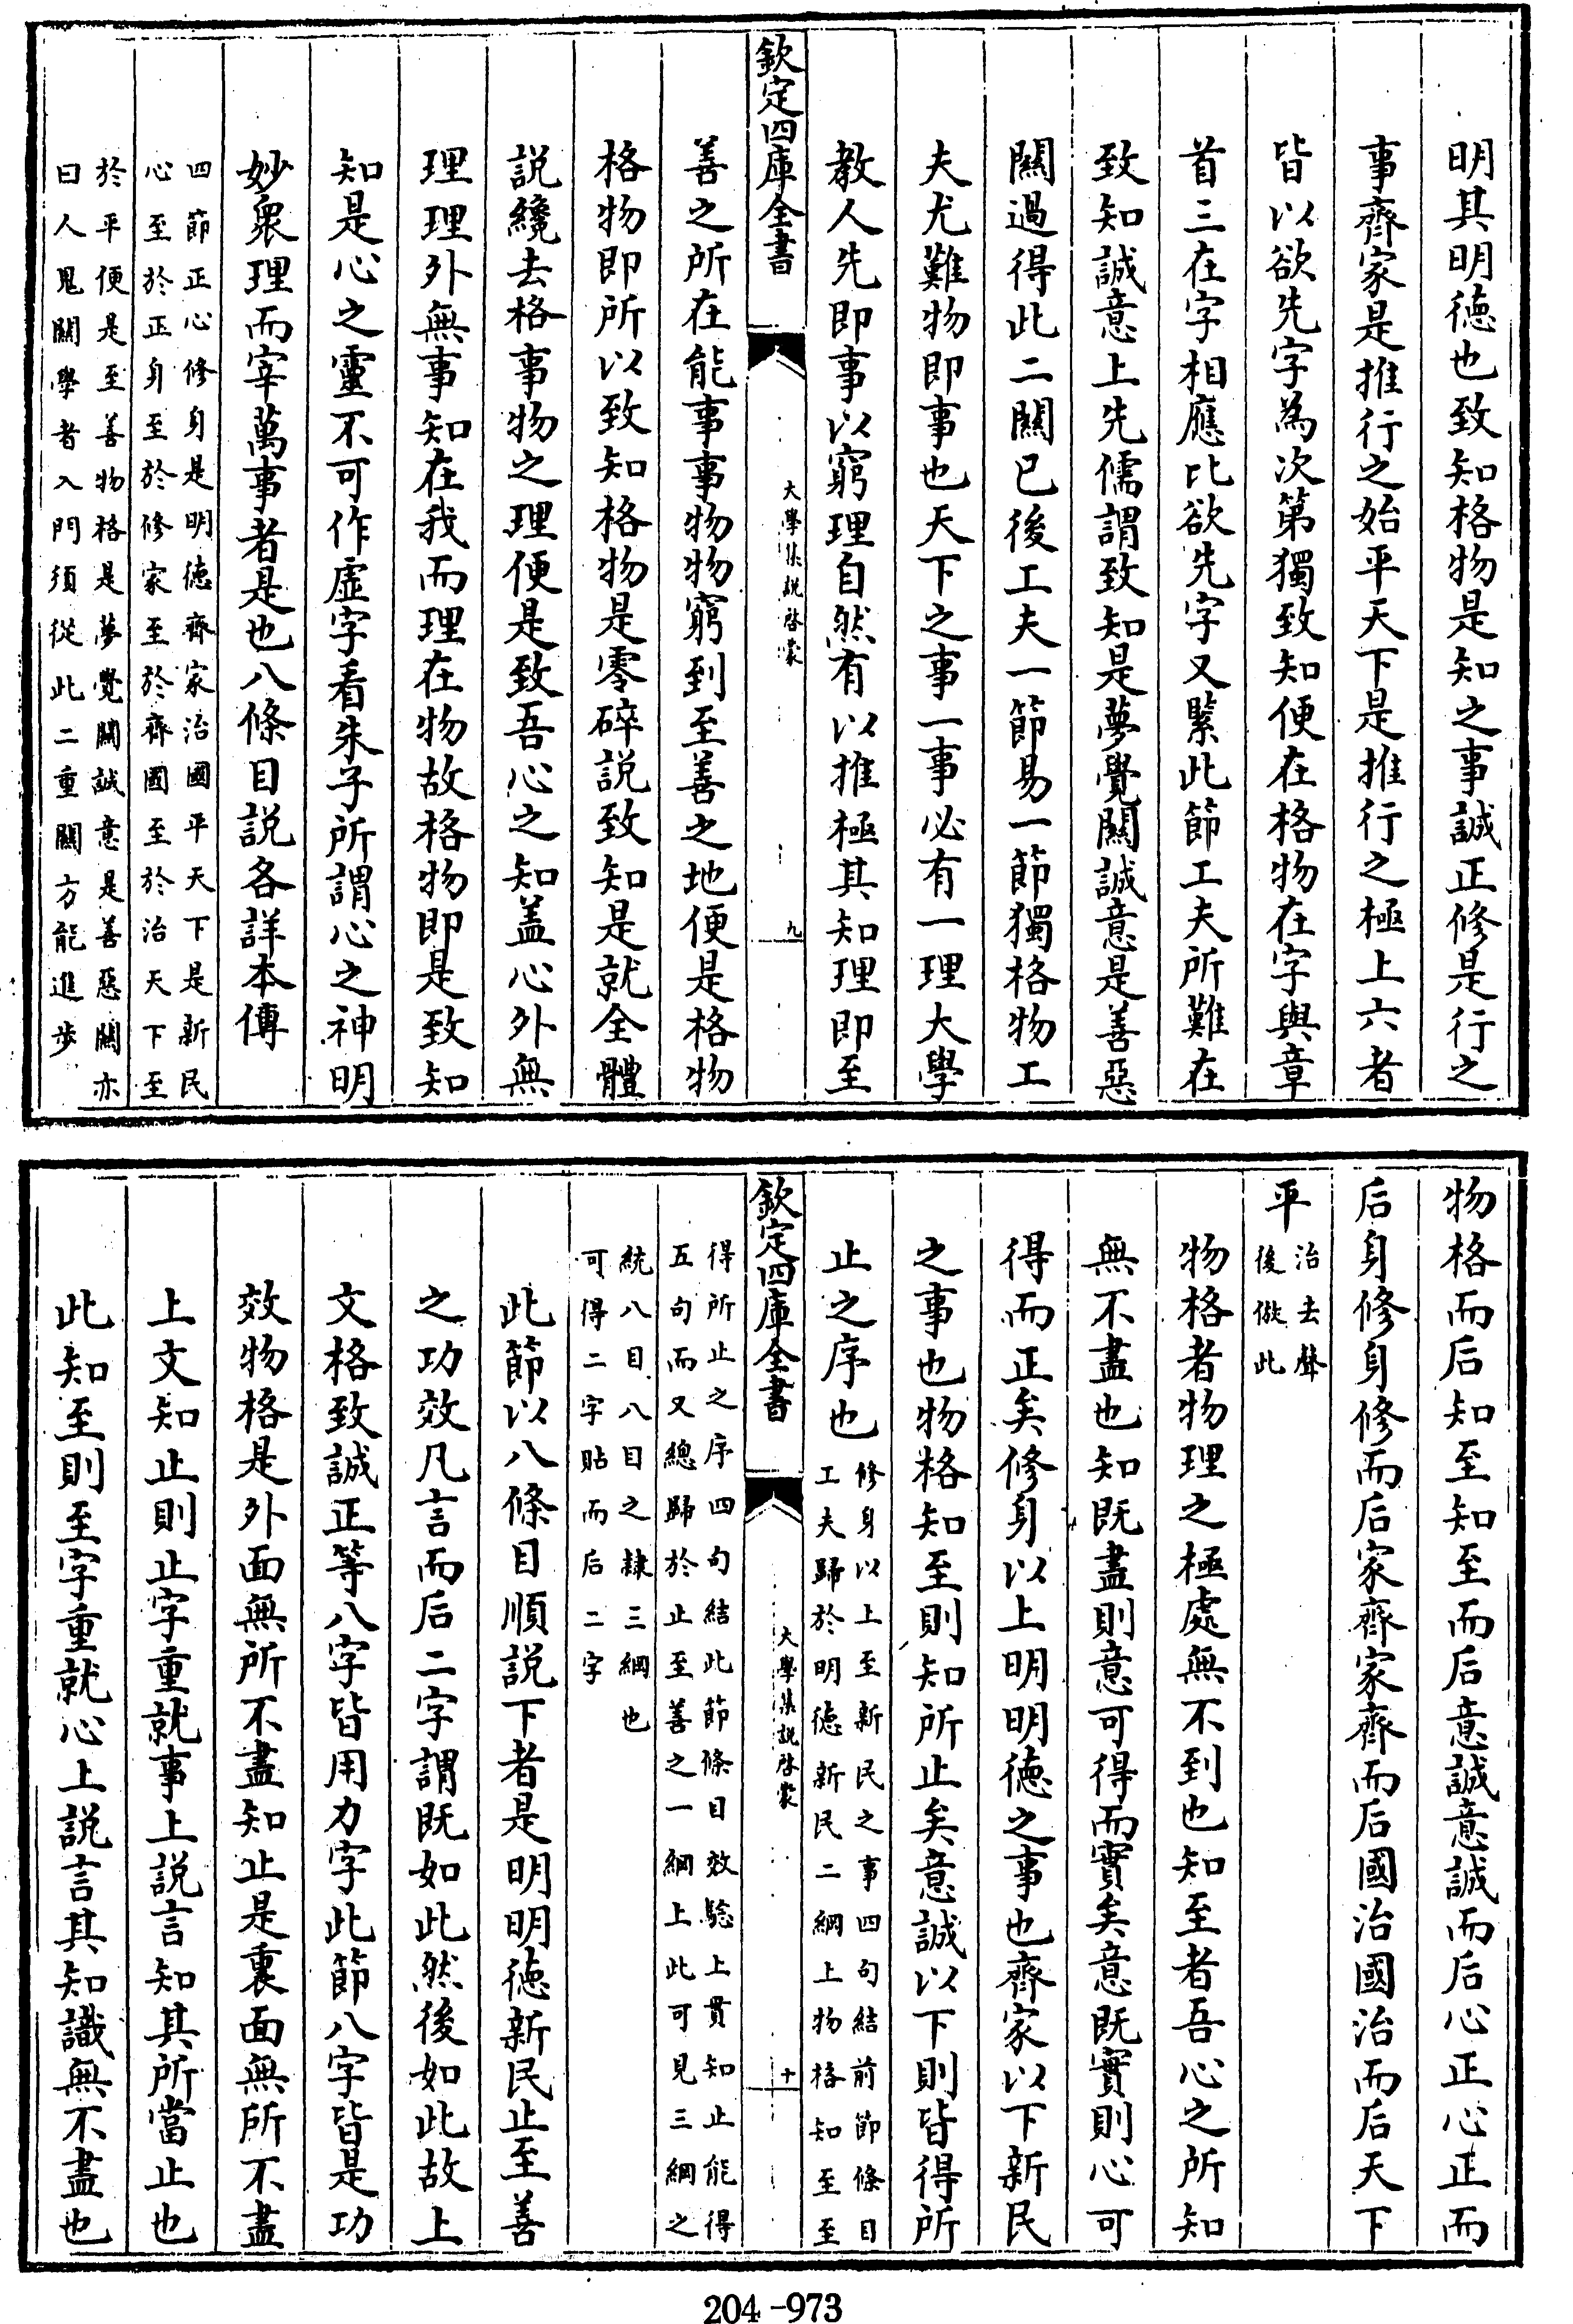 明其明徳也致知格物是知之事誠正修是行之
事齊家是推行之始平天下是推行之極上六者
皆以欲先字為次第獨致知便在格物在字與章
首三在字相應比欲先字又緊此節工夫所難在
致知誠意上先儒謂致知是夢覺關誠意是善惡
關過得此二關已後工夫一節易一節獨格物工
夫尤難物即事也天下之事一事必有一理大學
教人先即事以窮理自然有以推極其知理即至
欽定四庫全書
大學集説啓蒙
九
善之所在能事事物物窮到至善之地便是格物
格物即所以致知格物是零碎説致知是就全體
説纔去格事物之理便是致吾心之知盖心外無
理理外無事知在我而理在物故格物即是致知
知是心之靈不可作虚字看朱子所謂心之神明
妙衆理而宰萬事者是也八條目説各詳本傳
四節正心修身是明徳齊家治國平天下是新民
心至於正身至於修家至於齊國至於治天下至
於平便是至善物格是夢覺關誠意是善惡關亦
曰人鬼關學者入門須從此二重關方能進歩
物格而后知至知至而后意誠意誠而后心正心正而
后身修身修而后家齊家齊而后國治國治而后天下
平
治去聲
後倣此
物格者物理之極處無不到也知至者吾心之所知
無不盡也知既盡則意可得而實矣意既實則心可
得而正矣修身以上明明徳之事也齊家以下新民
之事也物格知至則知所止矣意誠以下則皆得所
止之序也
修身以上至新民之事四句結前節條目
工夫歸於明徳新民二綱上物格知至至
欽定四庫全書
大學集説啓蒙
十
得所止之序四句結此節條目效驗上貫知止能得
五句而又總歸於止至善之一綱上此可見三綱之
統八目八目之隷三綱也
可得二字貼而后二字
此節以八條目順説下者是明明徳新民止至善
之功效凡言而后二字謂既如此然後如此故上
文格致誠正等八字皆用力字此節八字皆是功
效物格是外面無所不盡知止是裏面無所不盡
上文知止則止字重就事上説言知其所當止也
此知至則至字重就心上説言其知識無不盡也
204-973